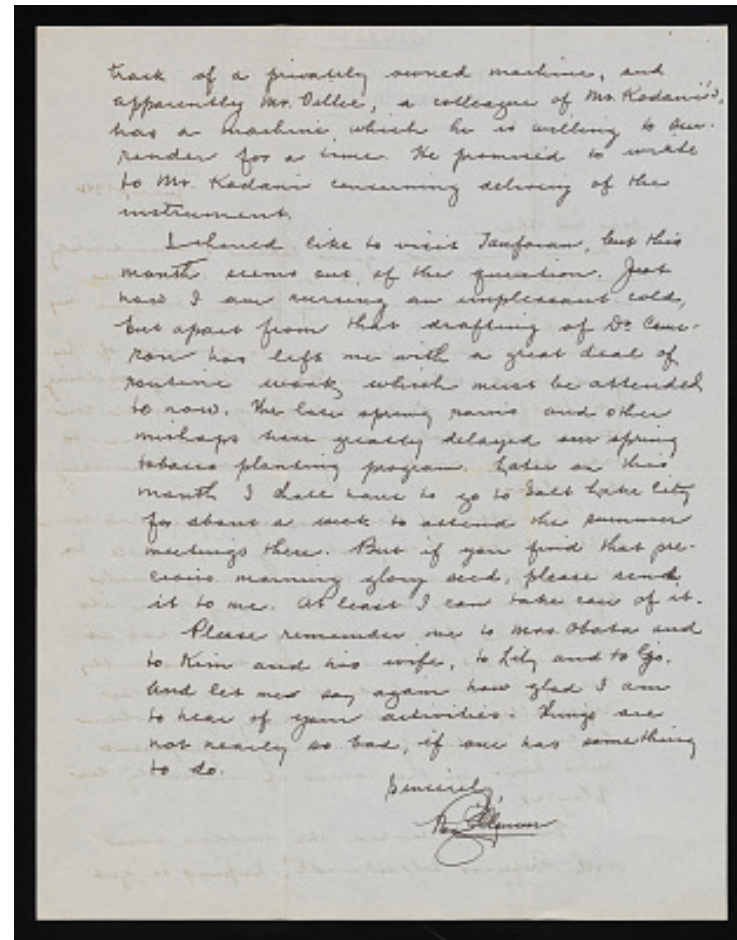 track of a privately owned machine, and
apparently Mr. Dillee, a colleague of Mr. Kodani's,
has a machine which he is willing to sur-
render for a time. He promised to write
to Mr. Kodani concerning delivery of the
instrument.
I should like to visit Tanforan, but this
month seems out of the question. Just
now I am nursing an unpleasant cold,
but apart from that drafting of Dr. Came-
ron has left me with a great deal of
routine work, which must be attended
to now. The late spring rains and other
mishaps have greatly delayed our spring
tobacco planting program. Later on this
month I shall have to go to Salt Lake City
for about a week to attend the summer
meetings there. But if you find that pre-
cious morning glory seed, please send
it to me. At least I can take care of it.
Please remember me to Mrs. Obata and
to Kim and his wife, to Lily and to Go.
And let me say again how glad I am
to hear of your activities. Things are
not nearly so bad, if one has something
to do.
Sincerely,